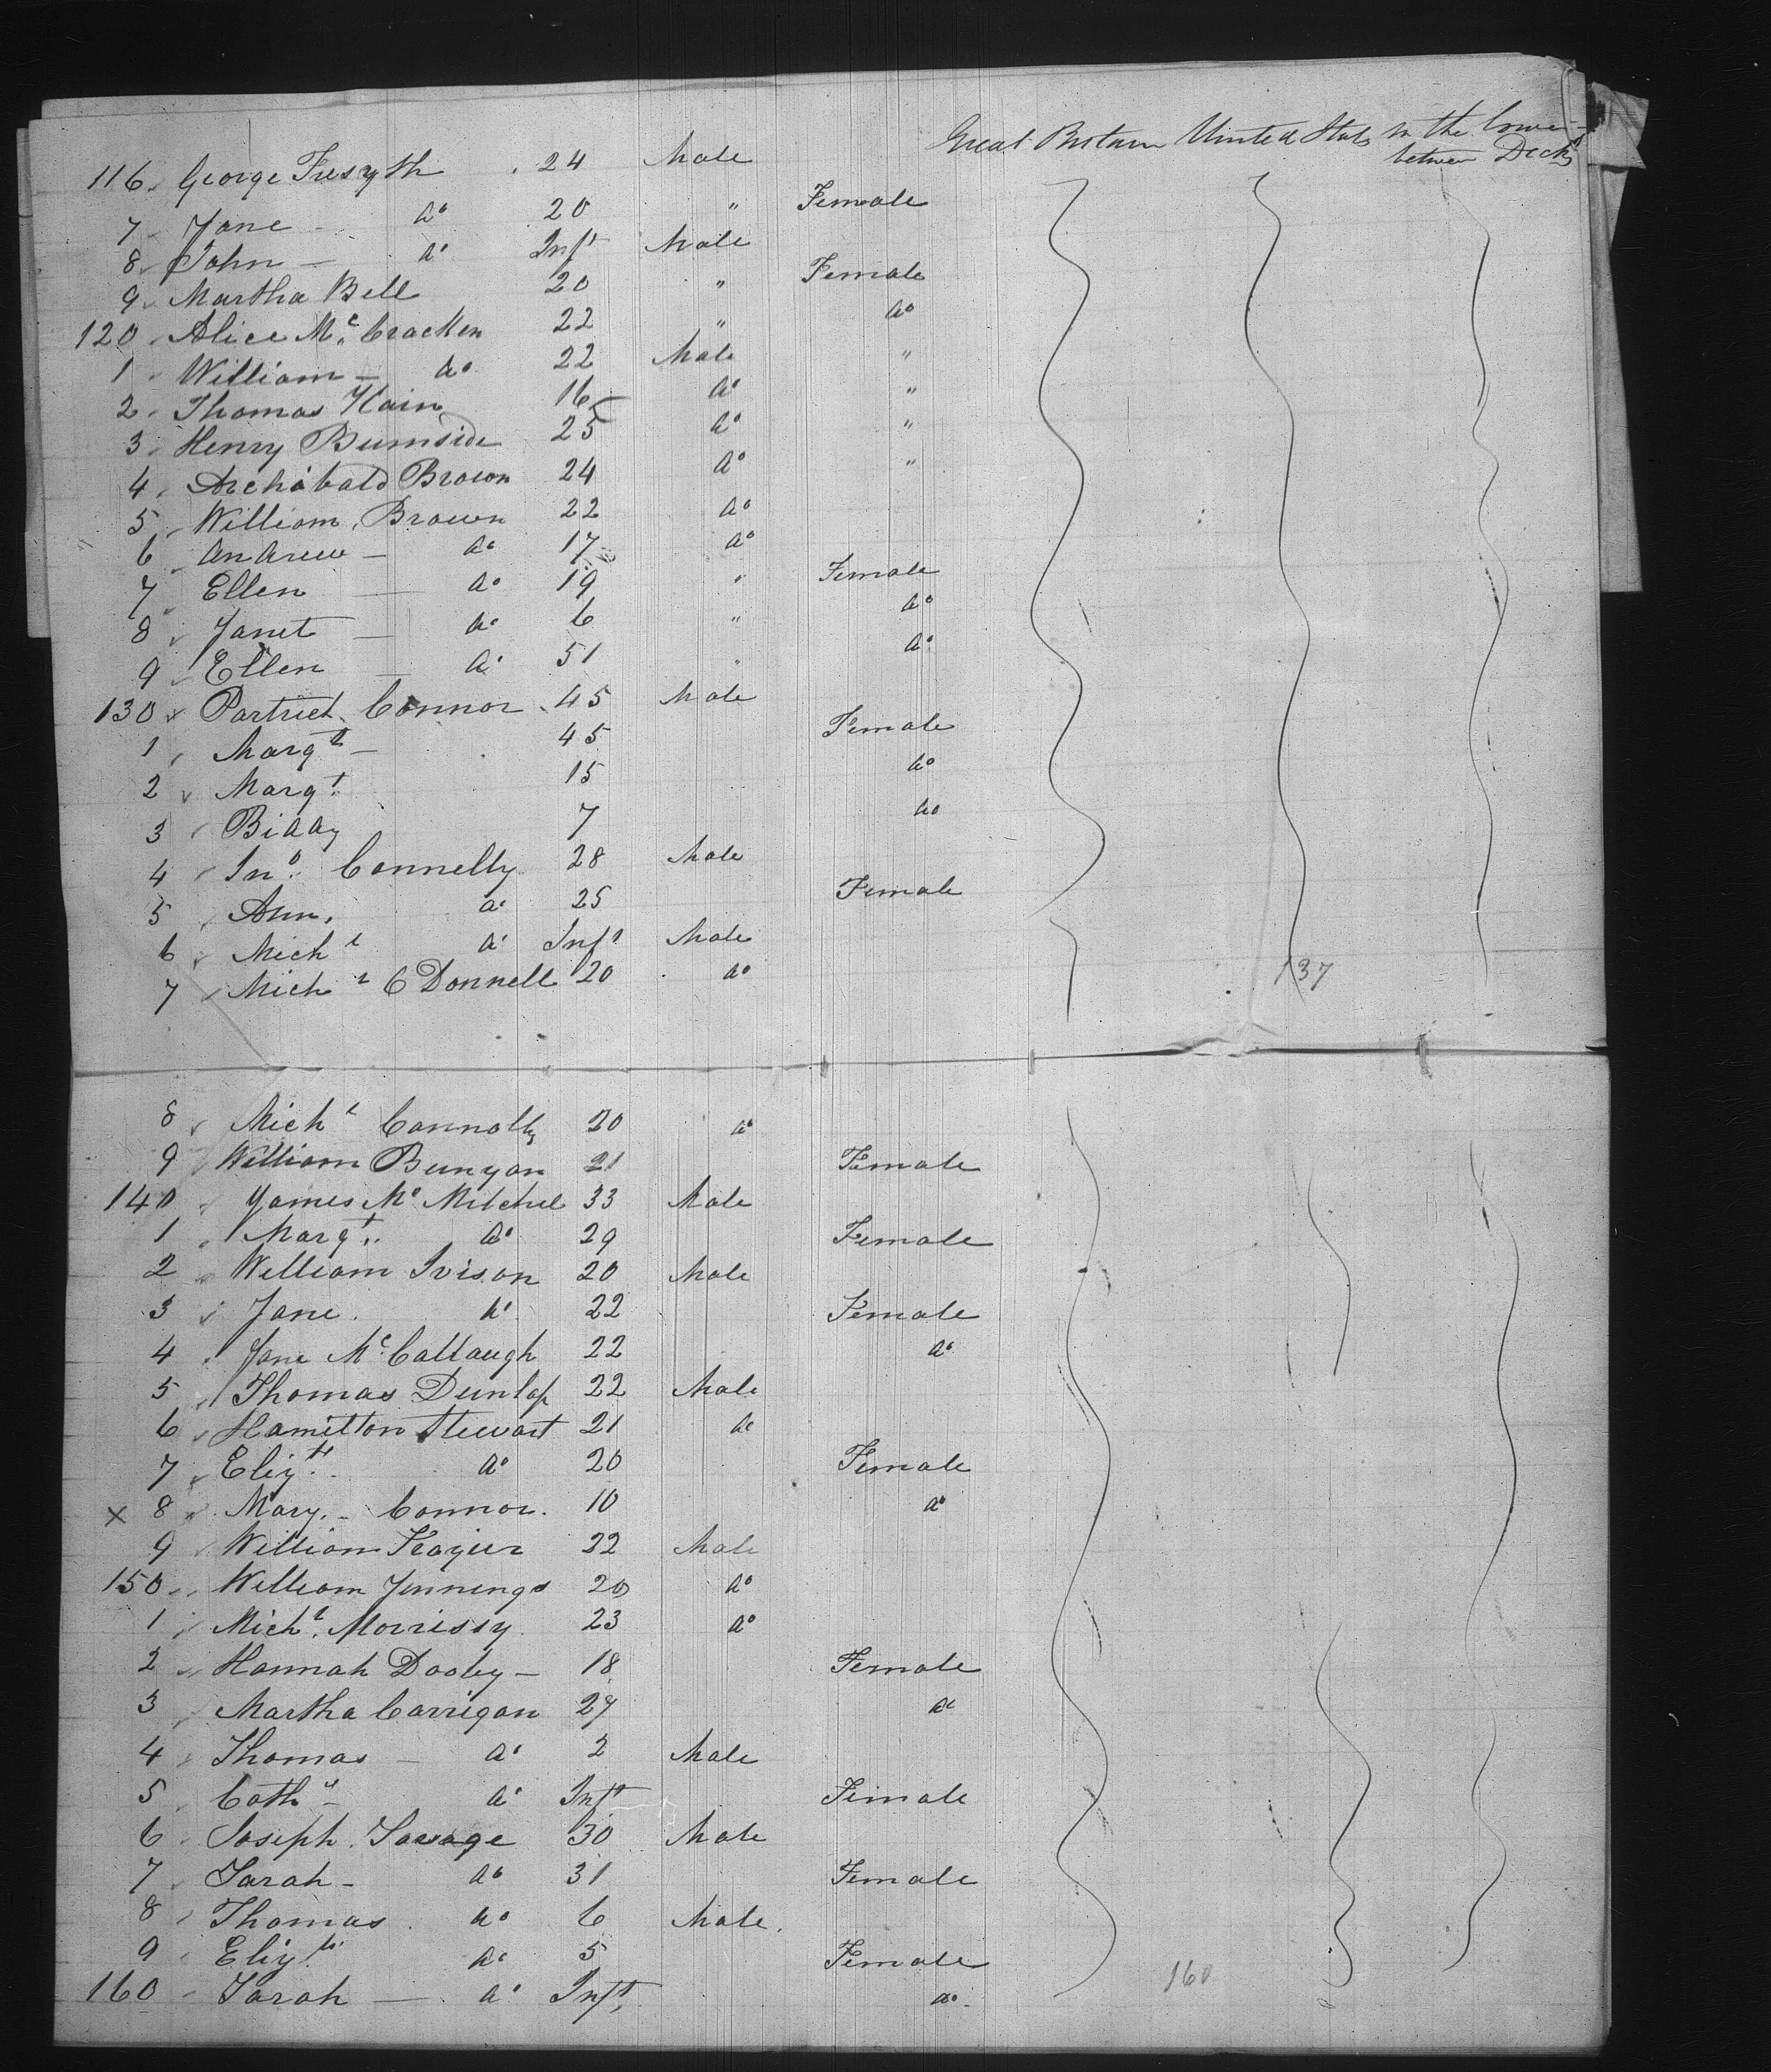 Great Britain United States In the lower
between Decks
116 George Fresyth 24 Male
7 Jane do 20 " Female
8 John — do Inft Male
9 Martha Bell 20 " Female
120 Alice Mc Cracken 22 " do
1 William — do 22 Male "
2 Thomas Hain 16 do "
3 Henry Burnside 25 do "
4 Archibald Brown 24 do "
5 William Brown 22 do
6 Andrew — do 17 do
7 Ellen — do 19 " Female
8 Janet — do 6 " do
9 Ellen — do 51 " do
130 Patrick Connor 45 Male
1 Margt — 45 Female
2 Margt 15 do
3 Biddy 7 do
4 Jno Connelly 28 Male
5 Ann do 25 Female
6 Michl do Inft Male
7 Michl O Donnell 20 do
137
8 Michl Connolly 20 do
9 William Bunyan 21 Female
140 James Mc Mitchel 33 Male
1 Margt do 29 Female
2 William Ivison 20 Male
3 Jane do 22 Female
4 Jane Mc Callaugh 22 do
5 Thomas Dunlop 22 Male
6 Hamilton Stewart 21 do
7 Elizth do 20 Female
x 8 Mary — Connor 10 do
9 William Frazier 22 Male
150 William Jennings 20 do
1 Michl Morrissy 23 do
2 Hannah Dooley — 18 Female
3 Martha Carrigan 27 do
4 Thomas — do 2 Male
5 Cathe — do Inft Female
6 Joseph Savage 30 Male
7 Sarah — do 31 Female
8 Thomas do 6 Male
9 Elizth do 5 Female
160 Sarah — do Inft do
160